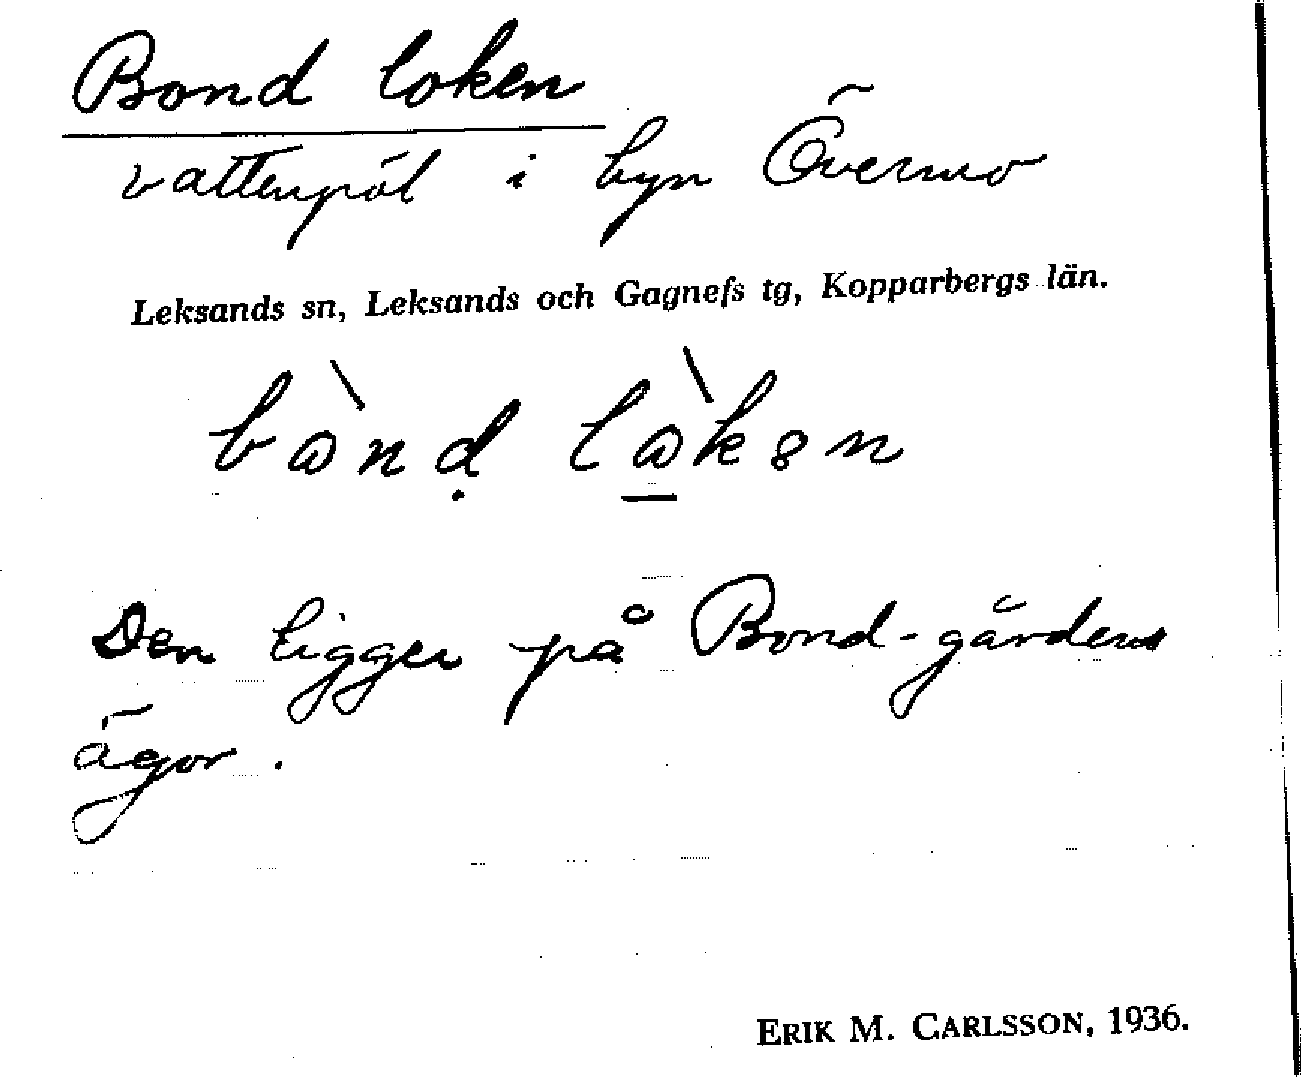 Bond loken
vattenpöl i byn Övermo
Leksands sn, Leksands och Gagnefs tg, Kopparbergs län.
bònḍ lò̱kən
Den ligger på Bond-gårdens
ägor.
ERIK M. CARLSSON, 1936.